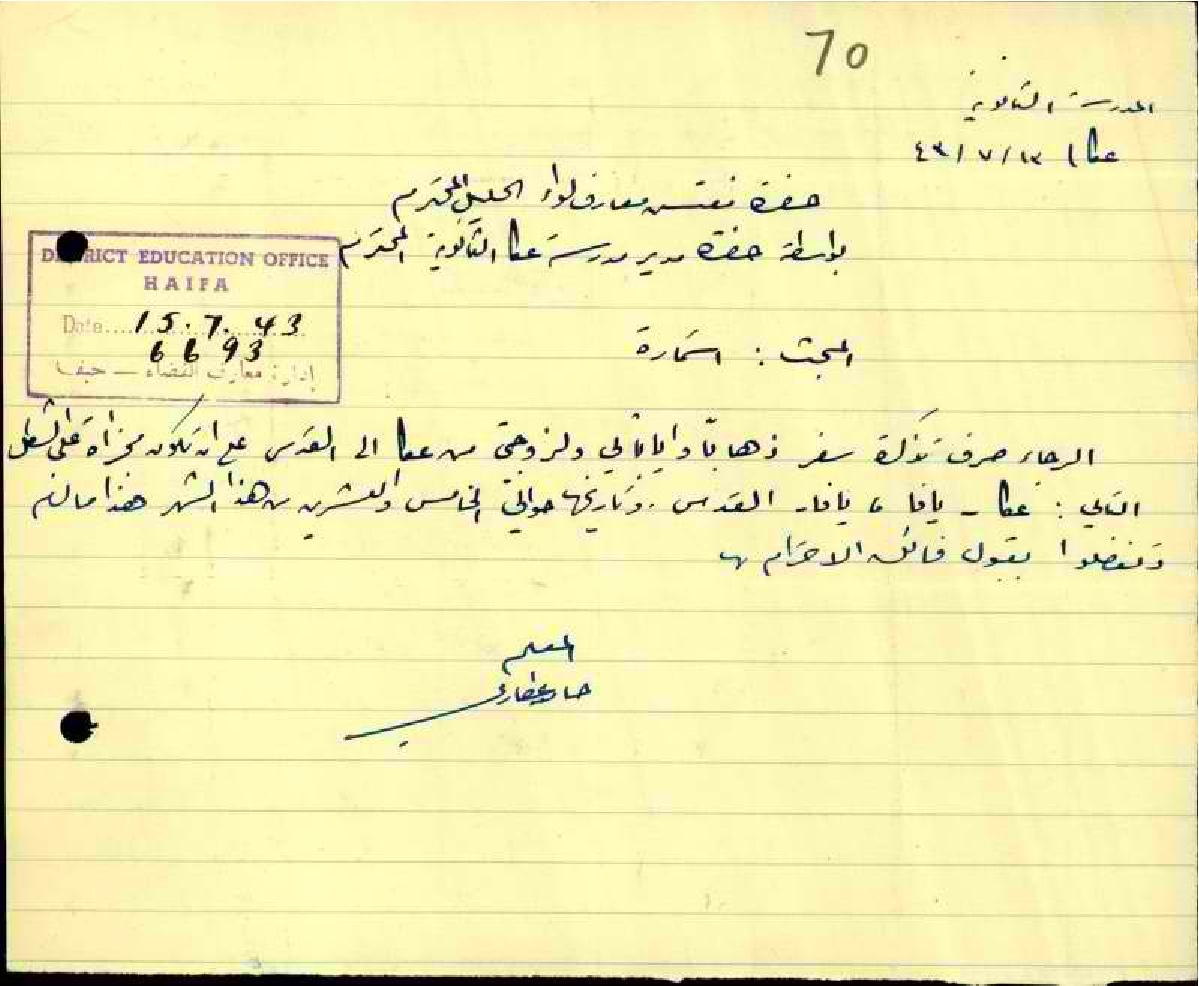 70
المدرسة الثانوية
عكا ١٣/٧/٤٣
حضرة مفتش معارف لواء الجليل المحترم
بواسطة حضرة مدير مدرسة عكا الثانوية المحترم
DISTRICT EDUCATION OFFICE
HAIFA
Date....15.7.43
6693
إدارة معارف القضاء — حيفا
المبحث : استمارة
الرجاء صرف تذكرة سفر ذهابًا وايابًا لي ولزوجتي من عكا الى القدس على ان تكون مجزأة على الشكل
التالي : عكا - يافا ، يافا - القدس . وتاريخها حوالي الخامس والعشرين من هذا الشهر هذا ما لزم
وتفضلوا بقبول فائق الاحترام
المعلم